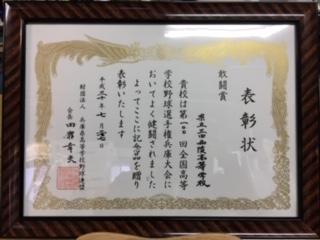 表彰状
敢闘賞
県立三田西陵高等学校
貴校は第一〇〇回全国高等
学校野球選手権兵庫大会に
おいてよく健闘されました
よってここに記念品を贈り
表彰いたします
平成三十年七月
財団法人 兵庫県高等学校野球連盟
会長